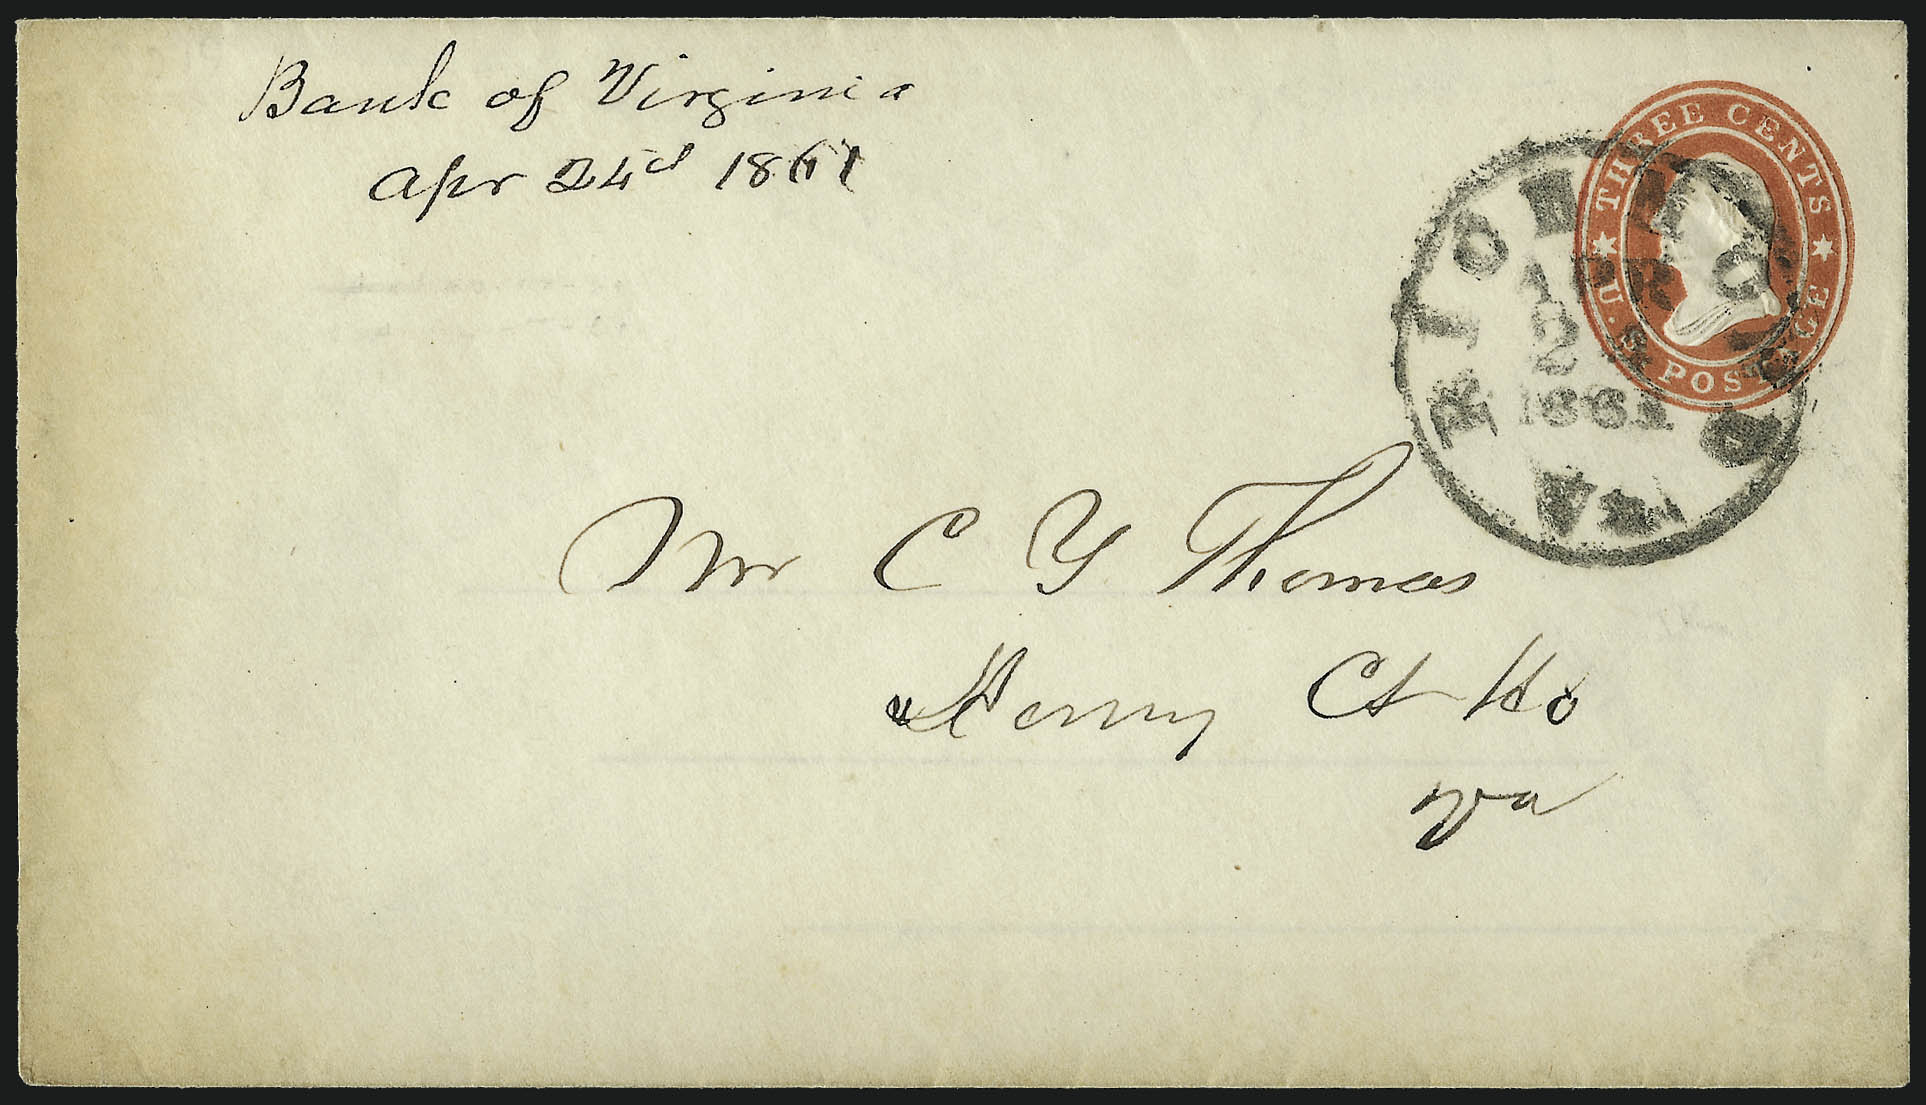 Bank of Virginia
Apr 24d 1861
THREE CENTS
U.S. POSTAGE
RICHMOND
APR
2
1861
VA
Mr C Y Thomas
Henry Ct Ho
Va